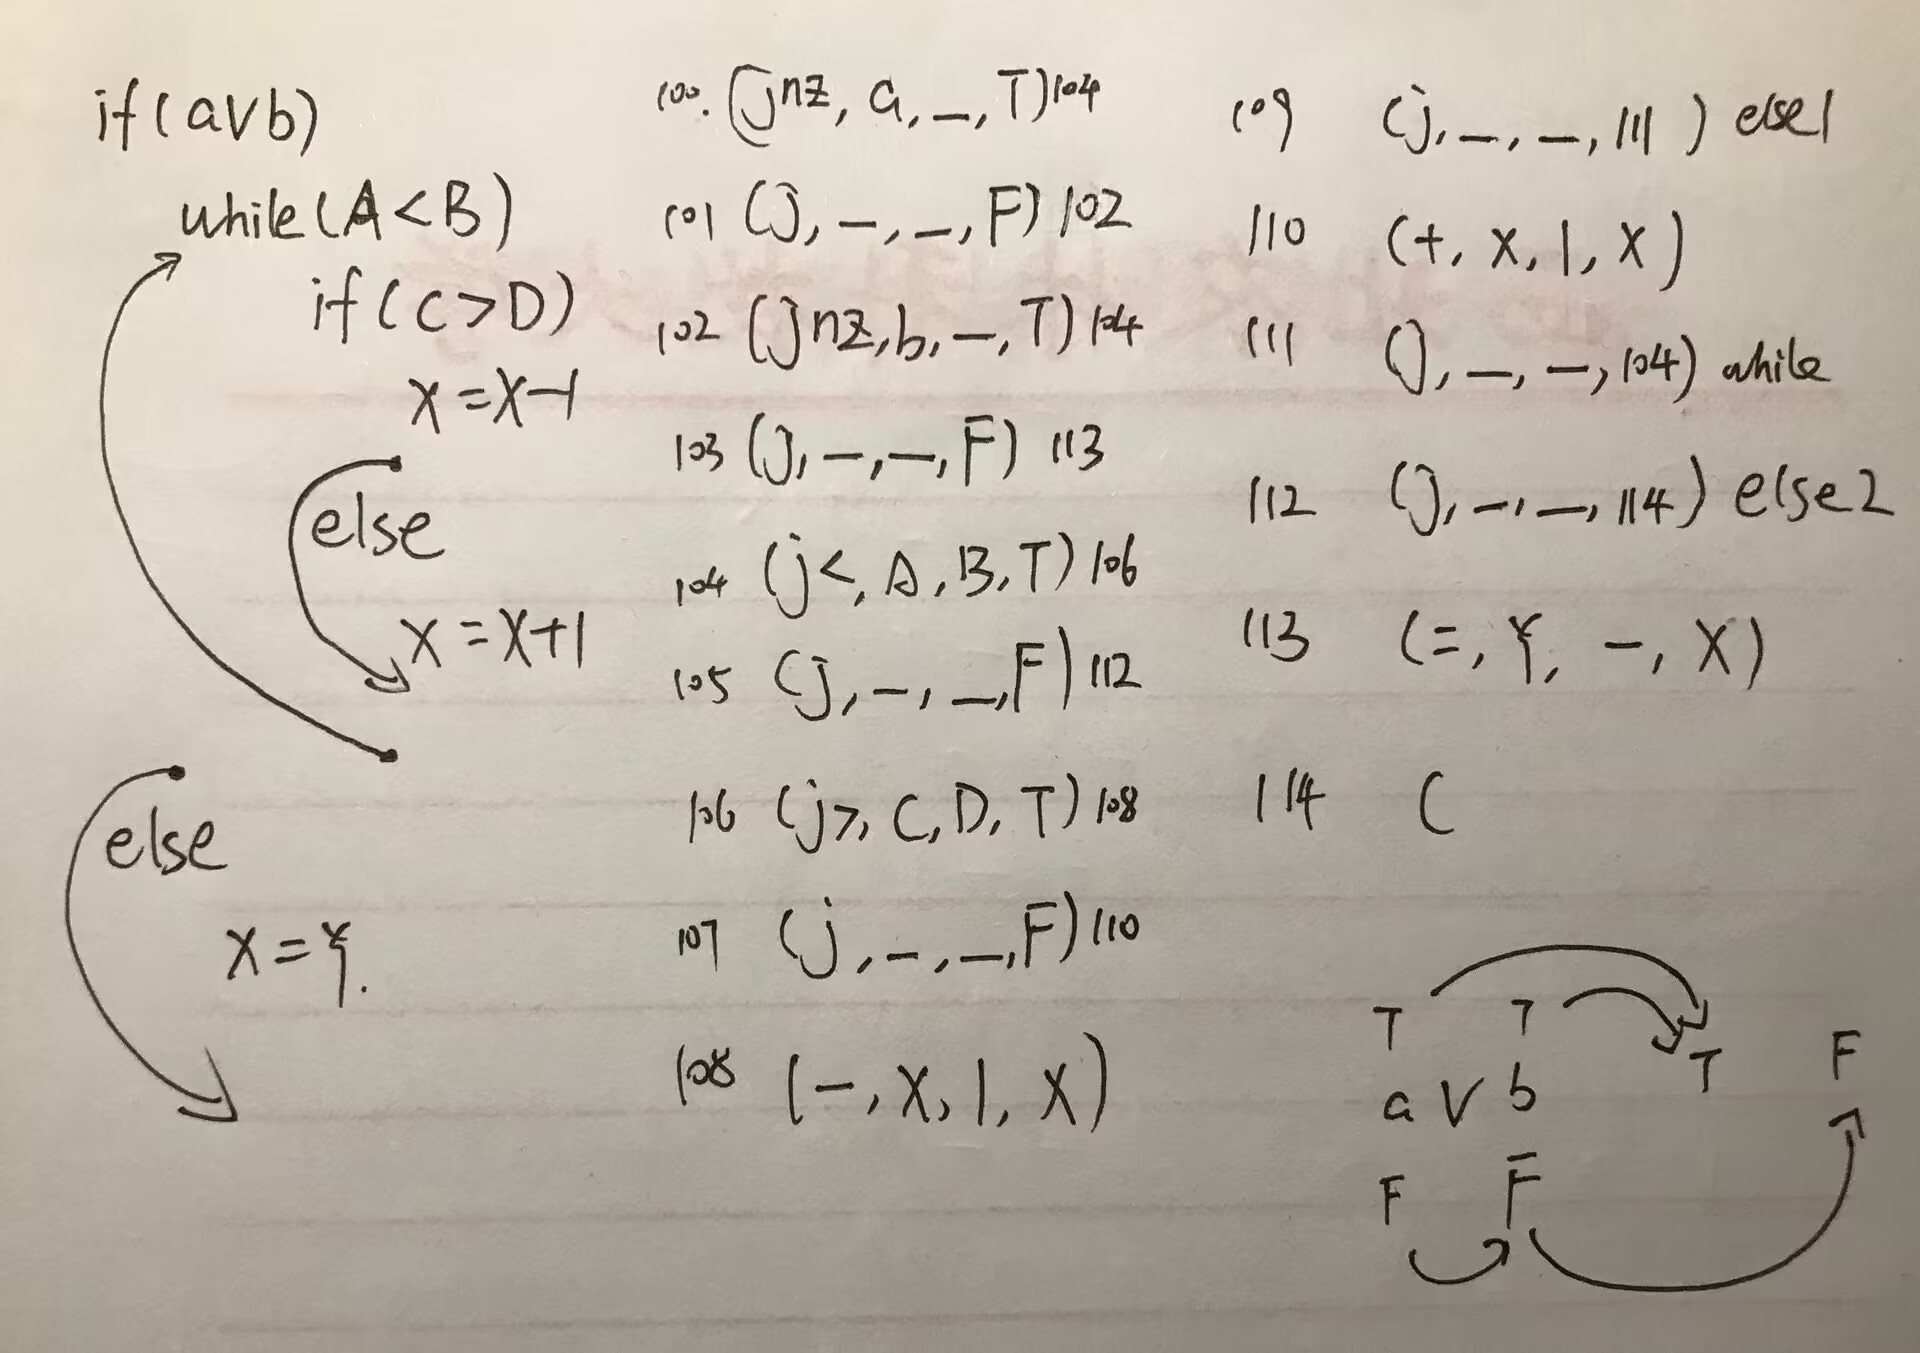 if(a∨b)
while(A<B)
if(C>D)
x=x-1
else
x=x+1
else
x=y.
100. (jnz, a, _, T)104
101 (j, -, -, F)102
102 (jnz, b, -, T)104
103 (j, -, -, F) 113
104 (j<, A, B, T)106
105 (j, -, _, F)112
106 (j>, C, D, T)108
107 (j, -, -, F)110
108 (-, x, 1, x)
109 (j, -, -, 111) else1
110 (+, x, 1, x)
111 (j, -, -, 104) while
112 (j, -, -, 114) else2
113 (=, y, -, x)
114 (
T T T F
a ∨ b
F F